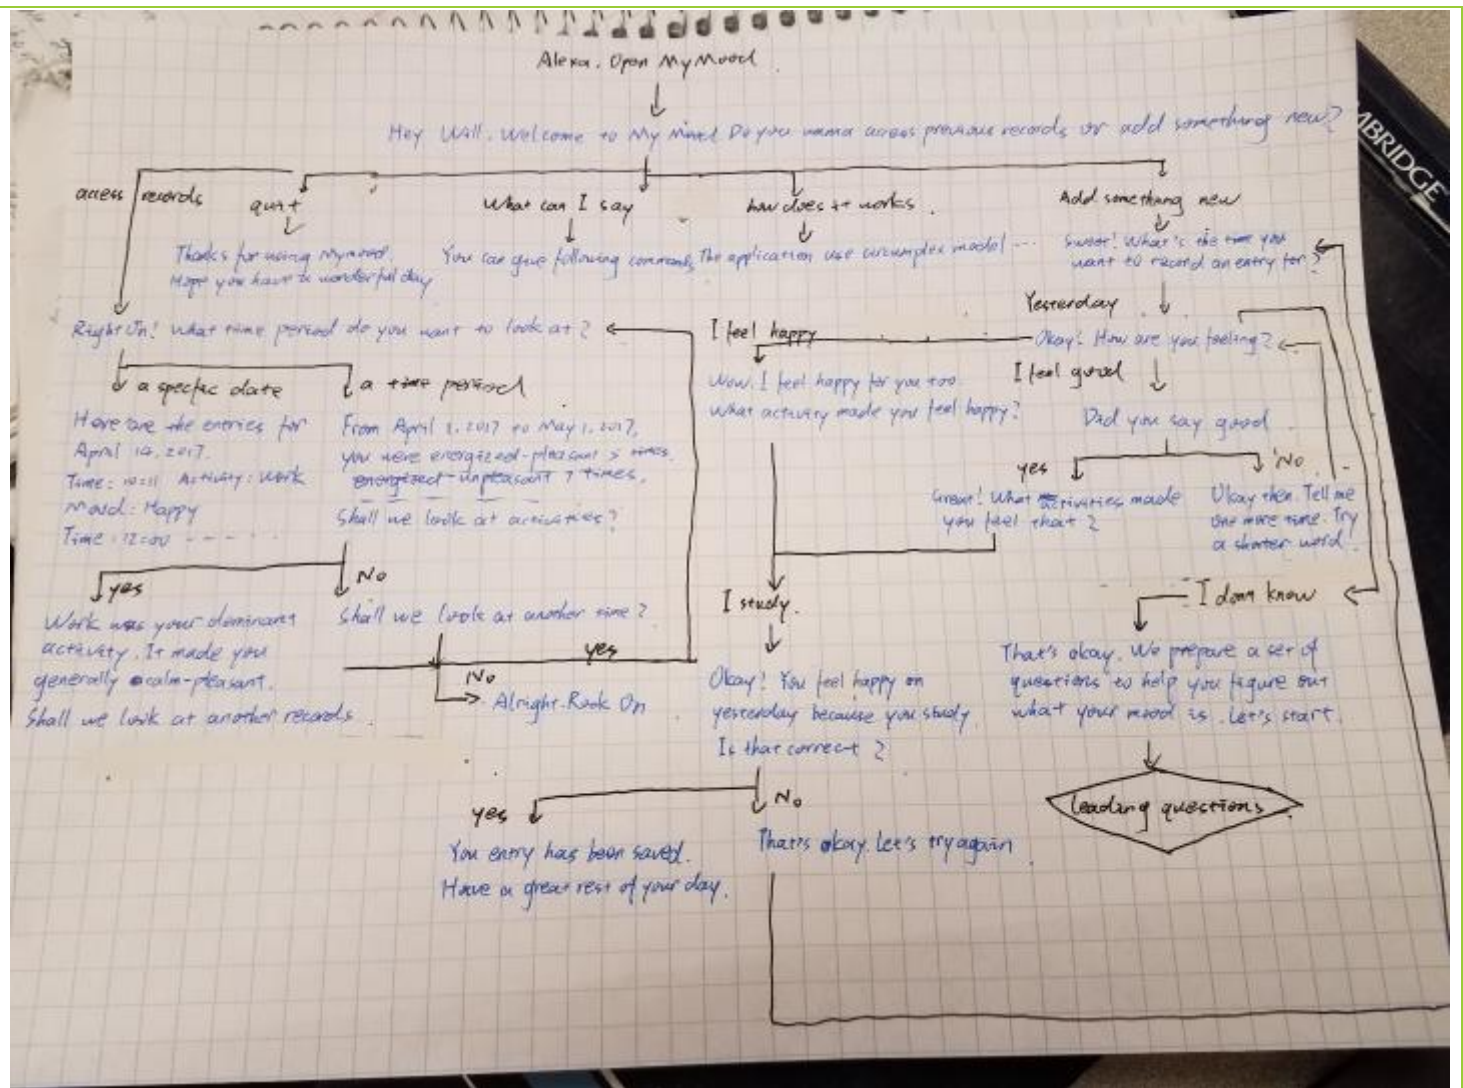 Alexa. Open MyMood
Hey Will. Welcome to My Mood Do you wanna access previous records or add something new?
access records
quit
What can I say
how does it works.
Add something new
Thanks for using Mymood.
Hope you have a wonderful day
You can give following commands
The application use circumplex model ...
Sweet! What's the time you
want to record an entry for?
Yesterday
Right On! What time period do you want to look at?
I feel happy
Okay! How are you feeling?
a specfic date
a time period
Wow. I feel happy for you too
What activity made you feel happy?
I feel good
Did you say good
Here are the entries for
April 14, 2017.
Time: 10:11 Activity: Work
Mood: Happy
Time: 12:00 - - - - -
From April 1, 2017 to May 1, 2017,
you were energized-pleasant 5 times.
energized-unpleasant 7 times.
Shall we look at activities?
yes
No
Great! What activities made
you feel that?
Okay then. Tell me
one more time. Try
a shorter word!
yes
No
Work was your dominant
activity. It made you
generally calm-pleasant.
Shall we look at another records.
Shall we look at another time?
yes
No
Alright. Rock On
I study.
Okay! You feel happy on
yesterday because you study
Is that correct?
I donn know
That's okay. We prepare a set of
questions to help you figure out
what your mood is. Let's start.
leading questions
yes
No
You entry has been saved.
Have a great rest of your day.
That's okay. Let's try again
MBRIDGE